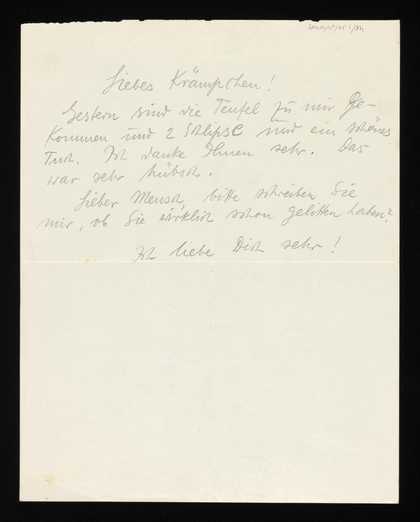 Liebes Krämpfchen!
Gestern sind die Teufel zu mir ge-
kommen und 2 Schlipse und ein schönes
Tuch. Ich danke Ihnen sehr. Das
war sehr hübsch.
Lieber Mensch, bitte schreiben Sie
mir, ob Sie wirklich schon gelitten haben?
Ich liebe Dich sehr!